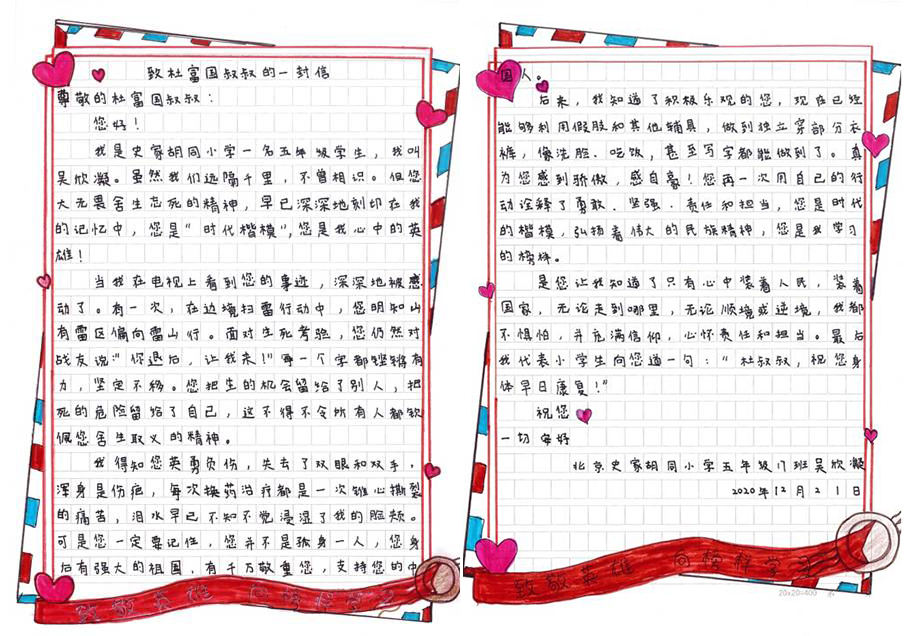 致杜富国叔叔的一封信
尊敬的杜富国叔叔：
您好！
我是史家胡同小学一名五年级学生，我叫
吴欣凝。虽然我们远隔千里，不曾相识。但您
大无畏舍生忘死的精神，早已深深地刻印在我
的记忆中，您是“时代楷模”，您是我心中的英
雄！
当我在电视上看到您的事迹，深深地被感
动了。有一次，在边境扫雷行动中，您明知山
有雷区偏向雷山行。面对生死考验，您仍然对
战友说：“你退后，让我来！”每一个字都铿锵有
力，坚定不移。您把生的机会留给了别人，把
死的危险留给了自己，这不得不令所有人都钦
佩您舍生取义的精神。
我得知您英勇负伤，失去了双眼和双手，
浑身是伤疤，每次换药治疗都是一次锥心撕裂
的痛苦，泪水早已不知不觉浸湿了我的脸颊。
可是您一定要记住，您并不是孤身一人，您身
后有强大的祖国，有千万敬重您，支持您的中
致敬英雄 向榜样学习
国人。
后来，我知道了积极乐观的您，现在已经
能够利用假肢和其他辅具，做到独立穿部分衣
裤，像洗脸、吃饭，甚至写字都能做到了。真
为您感到骄傲，感自豪！您再一次用自己的行
动诠释了勇敢、坚强、责任和担当，您是时代
的楷模，弘扬着伟大的民族精神，您是我学习
的榜样。
是您让我知道了只有心中装着人民，装着
国家，无论走到哪里，无论顺境或逆境，我都
不惧怕，并充满信仰，心怀责任和担当。最后
我代表小学生向您道一句：“杜叔叔，祝您身
体早日康复！”
祝您
一切安好
北京史家胡同小学五年级17班吴欣凝
2020年12月21日
致敬英雄 向榜样学习
20x20=400